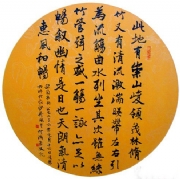 此地有崇山峻領茂林脩
竹又有清流激湍暎帶左右引
為流觴曲水列坐其次雖無絲
竹管弦之盛一觴一詠亦足以
暢叙幽情是日也天朗氣清
惠風和暢